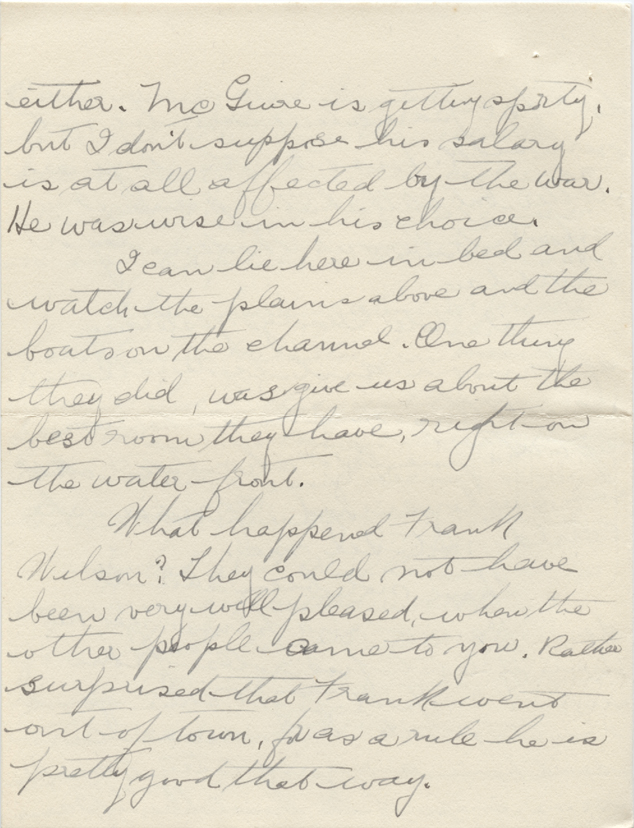 either. Mc Guire is getting sporty,
but I don't suppose his salary
is at all affected by the war.
He was wise in his choice.
I can lie here in bed and
watch the plains above and the
boats on the channel. One thing
they did, was give us about the
best room they have, right on
the water front.
What happend Frank
Wilson? They could not have
been very well pleased, when the
other people came to you. Rather
surprised that Frank went
out of town, for as a rule he is
pretty good that way.